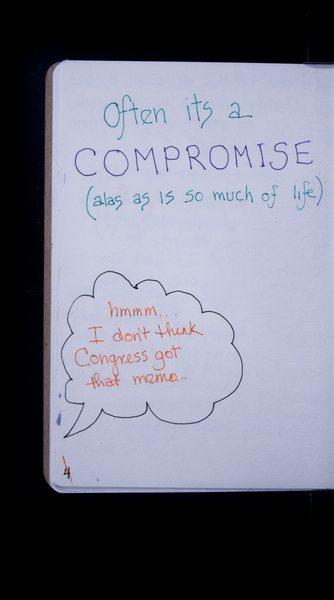 Often its a
COMPROMISE
(alas as is so much of life)
hmmm...
I don't think
Congress got
that memo..
4